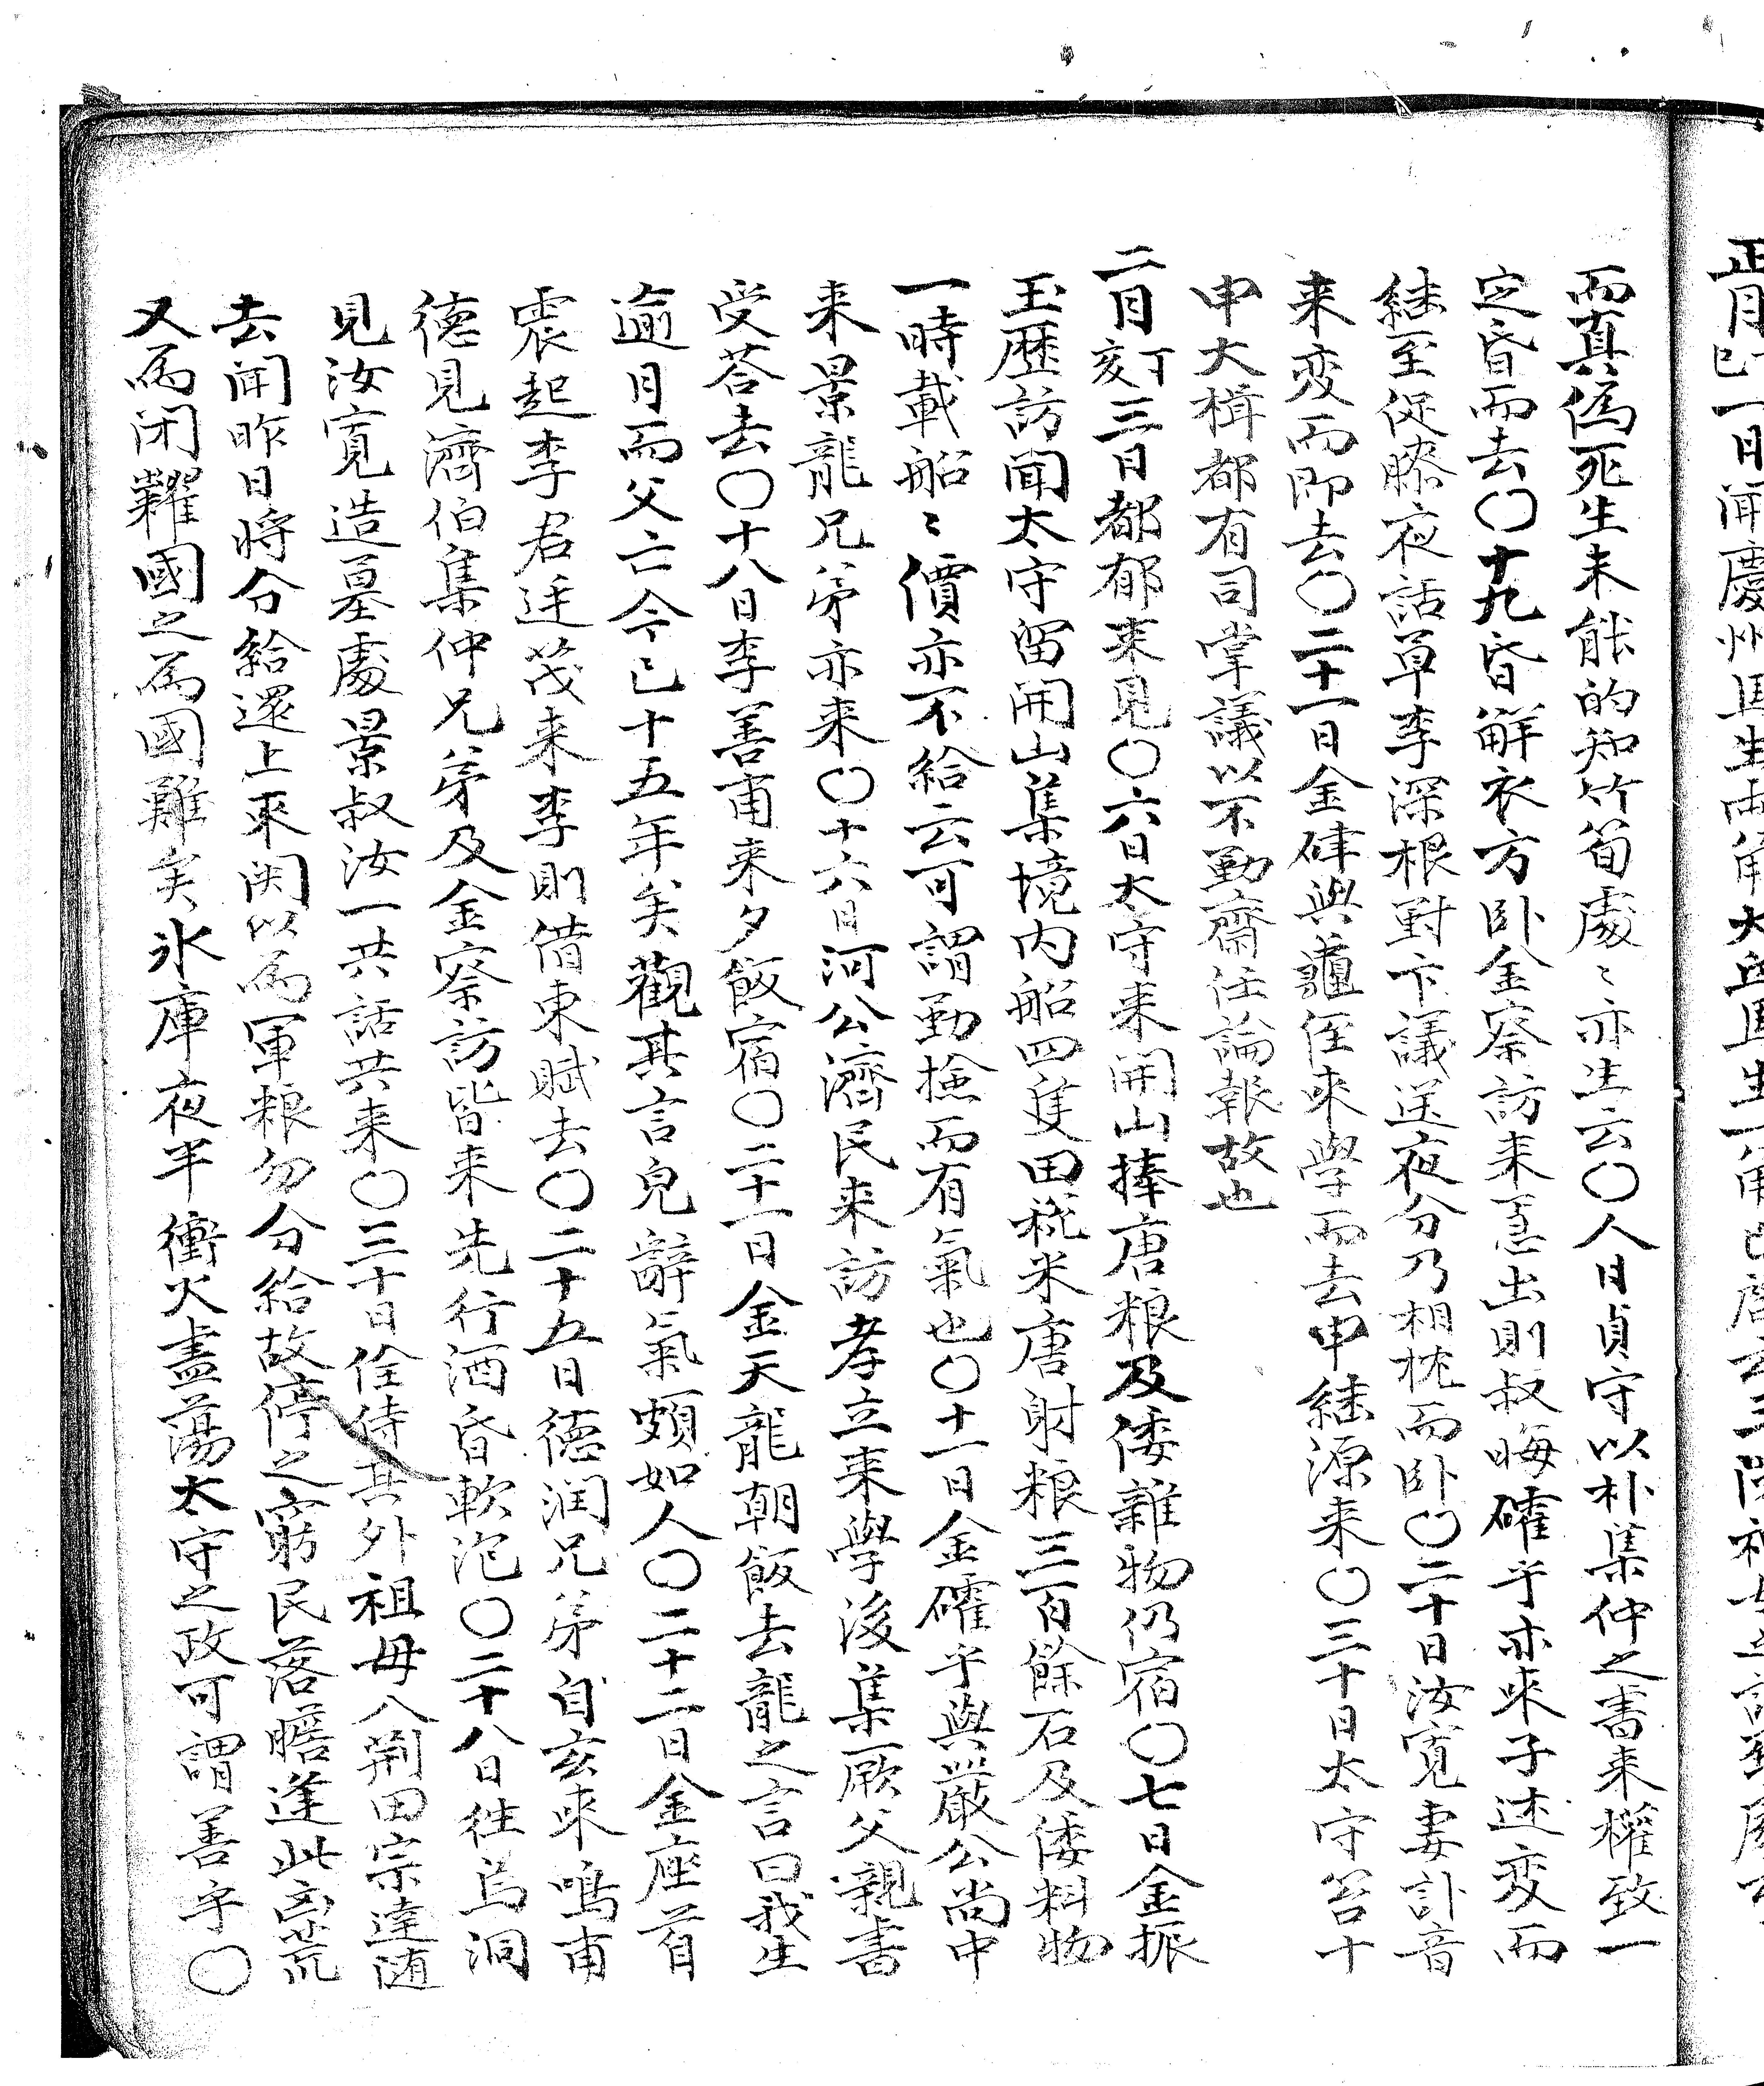 正月 一日聞慶州馬生兩角大丘馬生一角
而眞僞死生未能的知竹筍處〻亦生云○人日貞守以朴集仲之書来權致一
定昏而去○十九昏解衣方卧金察訪来 出則叔晦確乎亦来子述変而
継至促膝夜話單李深根對卞議送夜分乃相枕而卧○二十日汝寬妻訃音
来変而即去○二十一日金硉與 侄来學而去申継源来○三十日太守笞十
申大楫都有司掌議以不勤齋任論報故也
二月丁亥三日都郁来見○六日太守来開山捧唐粮及倭雜物仍宿○七日金振
玉歴訪聞太守留開山集境内船四隻田税米唐射粮三百餘石及倭料物
一時載船〻價亦不給云可謂勤撿而有氣也○十一日金確乎與嚴公尚中
来景龍兄弟亦来○十六日河公濟民来訪孝立来學後集一厥父親書
受荅去○十八日李善甫来夕飯宿○二十一日金天龍朝飯去龍之言曰我生
逾月而父亡今已十五年矣觀其言皃辭氣頗如人○二十二日金座首
震起李君廷茂来李則借東賦去○二十五日德润兄弟自玄来鳴甫
德見濟伯集仲兄弟及金察訪皆来先行酒昏軟泡○二十八日往烏洞
見汝寬造墓處景叔汝一共話共来○三十日佺侍其外祖母入荆田宗達随
去聞昨日將分給還上來関以為軍粮勿分給故停之窮民落膽逢此 荒
又為闭糶國之為國難矣氷庫夜半衝火盡蕩太守之政可謂善乎○